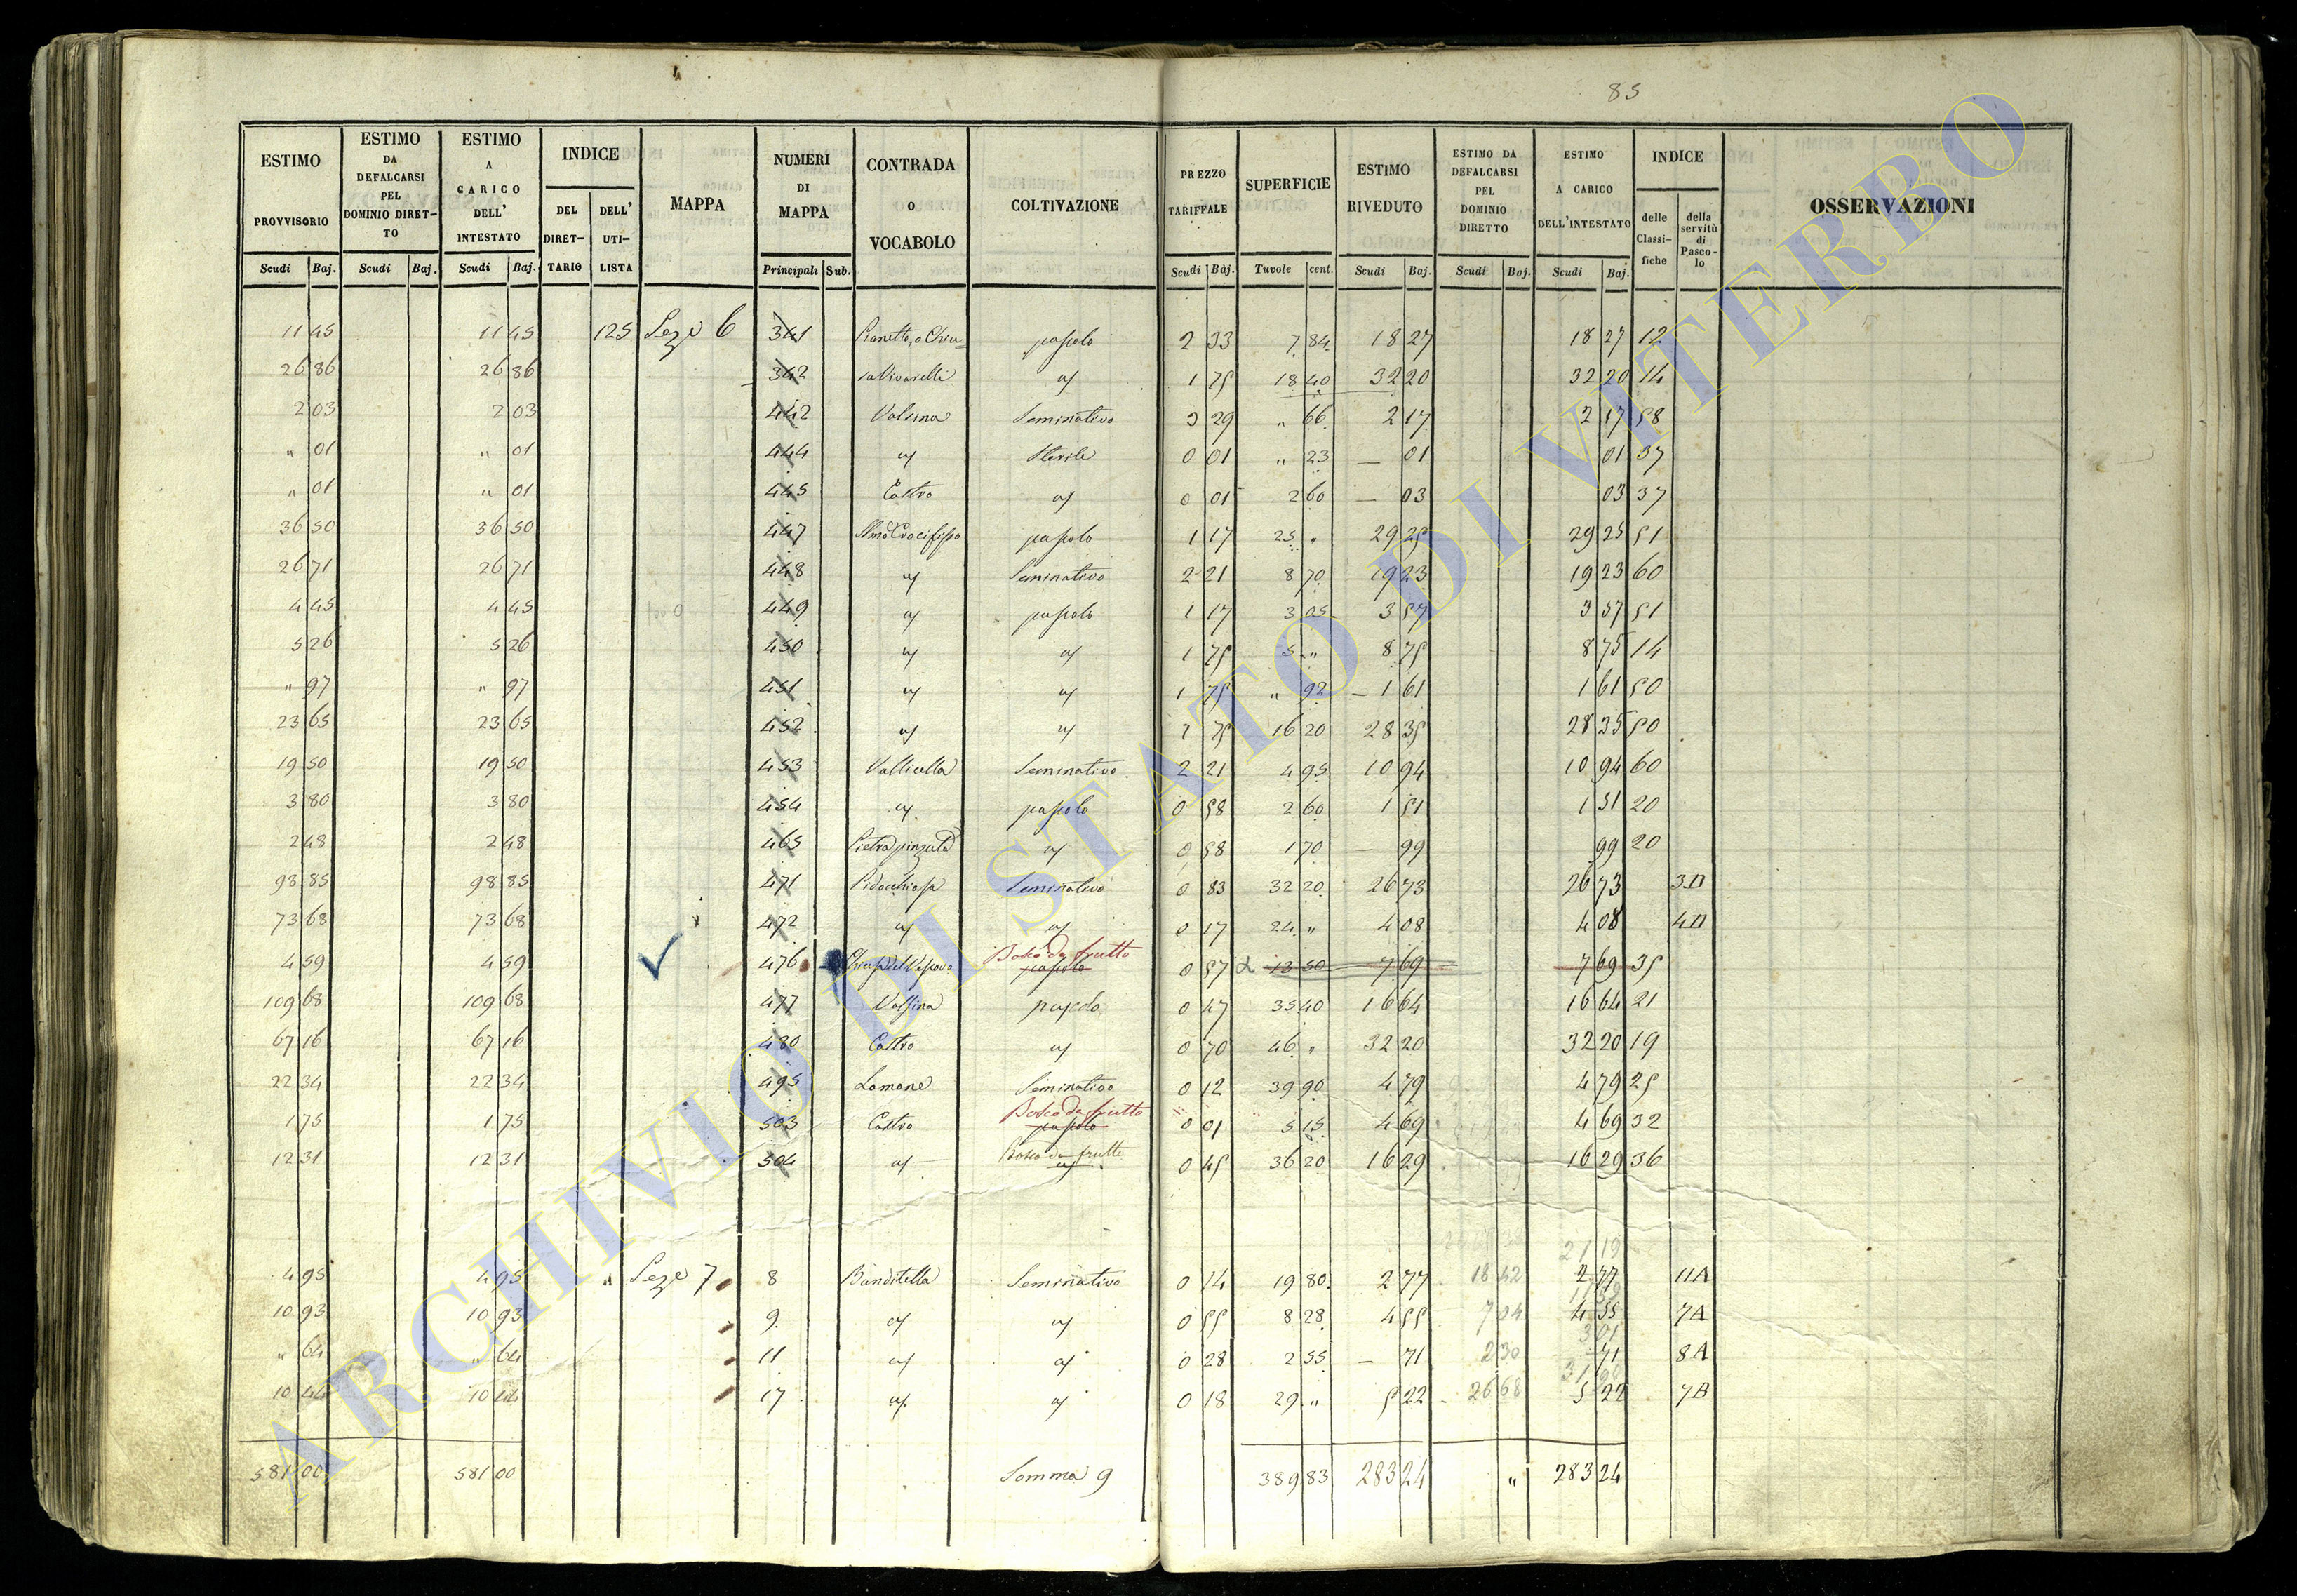 85
ESTIMO PROVVISORIO Scudi Baj. ESTIMO DA DEFALCARSI PEL DOMINIO DIRET-TO Scudi Baj. ESTIMO A CARICO DELL' INTESTATO Scudi Baj. INDICE DEL DIRET-TARIO DELL' UTI-LISTA MAPPA NUMERI DI MAPPA Principali Sub. CONTRADA O VOCABOLO COLTIVAZIONE PREZZO TARIFFALE Scudi Baj. SUPERFICIE Tavole cent. ESTIMO RIVEDUTO Scudi Baj. ESTIMO DA DEFALCARSI PEL DOMINIO DIRETTO Scudi Baj. ESTIMO A CARICO DELL'INTESTATO Scudi Baj. INDICE delle Classi-fiche della servitù di Pasco-lo OSSERVAZIONI
11 45 11 45 125 Seze 6 341 pascolo 2 33 7 84 18 27 18 27 12
26 86 26 86 342 a/ 1 75 18 40 32 20 32 20 14
2 03 2 03 442 Valsina Seminativo 3 29 " 66 2 17 2 17 58
" 01 " 01 444 a/ Sterile 0 01 " 23 — 01 01 37
" 01 " 01 445 Castro a/ 0 01 2 60 — 03 03 37
36 50 36 50 447 pascolo 1 17 25 " 29 25 29 25 51
26 71 26 71 448 a/ Seminativo 2 21 8 70 19 23 19 23 60
4 45 4 45 449 a/ pascolo 1 17 3 05 3 57 3 57 51
5 26 5 26 450 a/ a/ 1 75 5 " 8 75 8 75 14
" 97 " 97 451 a/ a/ 1 75 " 92 — 1 61 1 61 50
23 65 23 65 452 a/ a/ 1 75 16 20 28 35 28 35 50
19 50 19 50 453 Vallicella Seminativo 2 21 4 95 10 94 10 94 60
3 80 3 80 454 a/ pascolo 0 58 2 60 1 51 1 51 20
2 48 2 48 465 Pietra pinzuta a/ 0 58 1 70 — 99 99 20
98 85 98 85 471 Pidocchiosa Seminativo 0 83 32 20 26 73 26 73 3B
73 68 73 68 472 a/ a/ 0 17 24 " 4 08 4 08 4B
Bosco da frutto
4 59 4 59 476 Chiusa del Vescovo pascolo 0 57 13 50 7 69 7 69 35
109 68 109 68 477 Valsina pascolo 0 47 35 40 16 64 16 64 21
67 16 67 16 480 Castro a/ 0 70 46 " 32 20 32 20 19
22 34 22 34 495 Lamone Seminativo 0 12 39 90 4 79 4 79 25
Bosco da frutto
1 75 1 75 503 Castro pascolo 0 91 5 15 4 69 4 69 32
Bosco da frutto
12 31 12 31 504 a/ a/ 0 45 36 20 16 29 16 29 36
21 19
4 95 4 95 " Seze 7 8 Banditella Seminativo 0 14 19 80 2 77 18 42 2 77 11A
10 93 10 93 9 a/ a/ 0 55 8 28 4 55 7 04 4 55 7A
" 64 " 64 11 a/ a/ 0 28 2 55 — 71 2 30 71 8A
10 44 10 44 17 a/ a/ 0 18 29 " 5 22 26 68 5 22 7B
581 00 581 00 Somma 9 389 83 283 24 " 283 24
ARCHIVIO DI STATO DI VITERBO